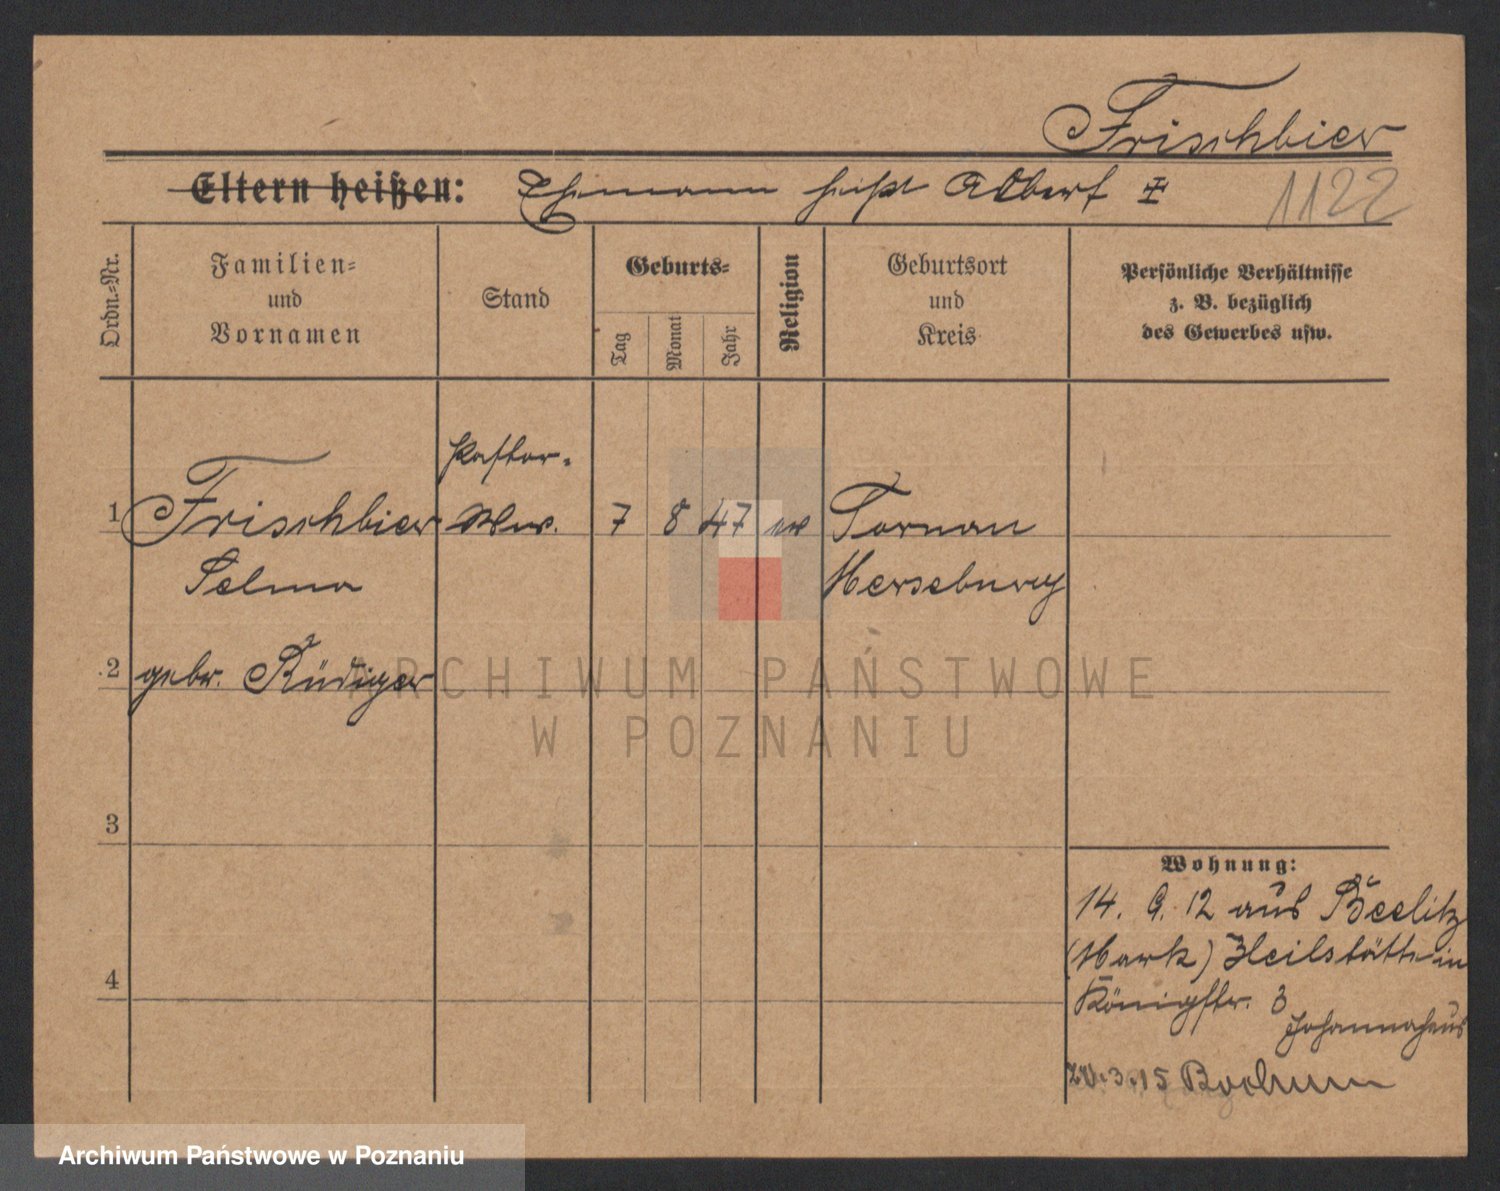 Frischbier
Eltern heißen: Ehemann heißt Albert
1122
Ordn.-Nr.
Familien-
und
Vornamen
Stand
Geburts-
Tag
Monat
Jahr
Religion
Geburtsort
und
Kreis
Persönliche Verhältnisse
z. B. bezüglich
des Gewerbes usw.
Pastor-
1 Frischbier Wwe. 7 8 47 ev Tornau
Selma Merseburg
2 gebr. Rüdiger
3
4
Wohnung:
14. 9. 12 aus Beelitz
(Mark) Heilstätte in
Königstr. 3
Johannahaus
3.15 Bochum
ARCHIWUM PAŃSTWOWE
W POZNANIU
Archiwum Państwowe w Poznaniu